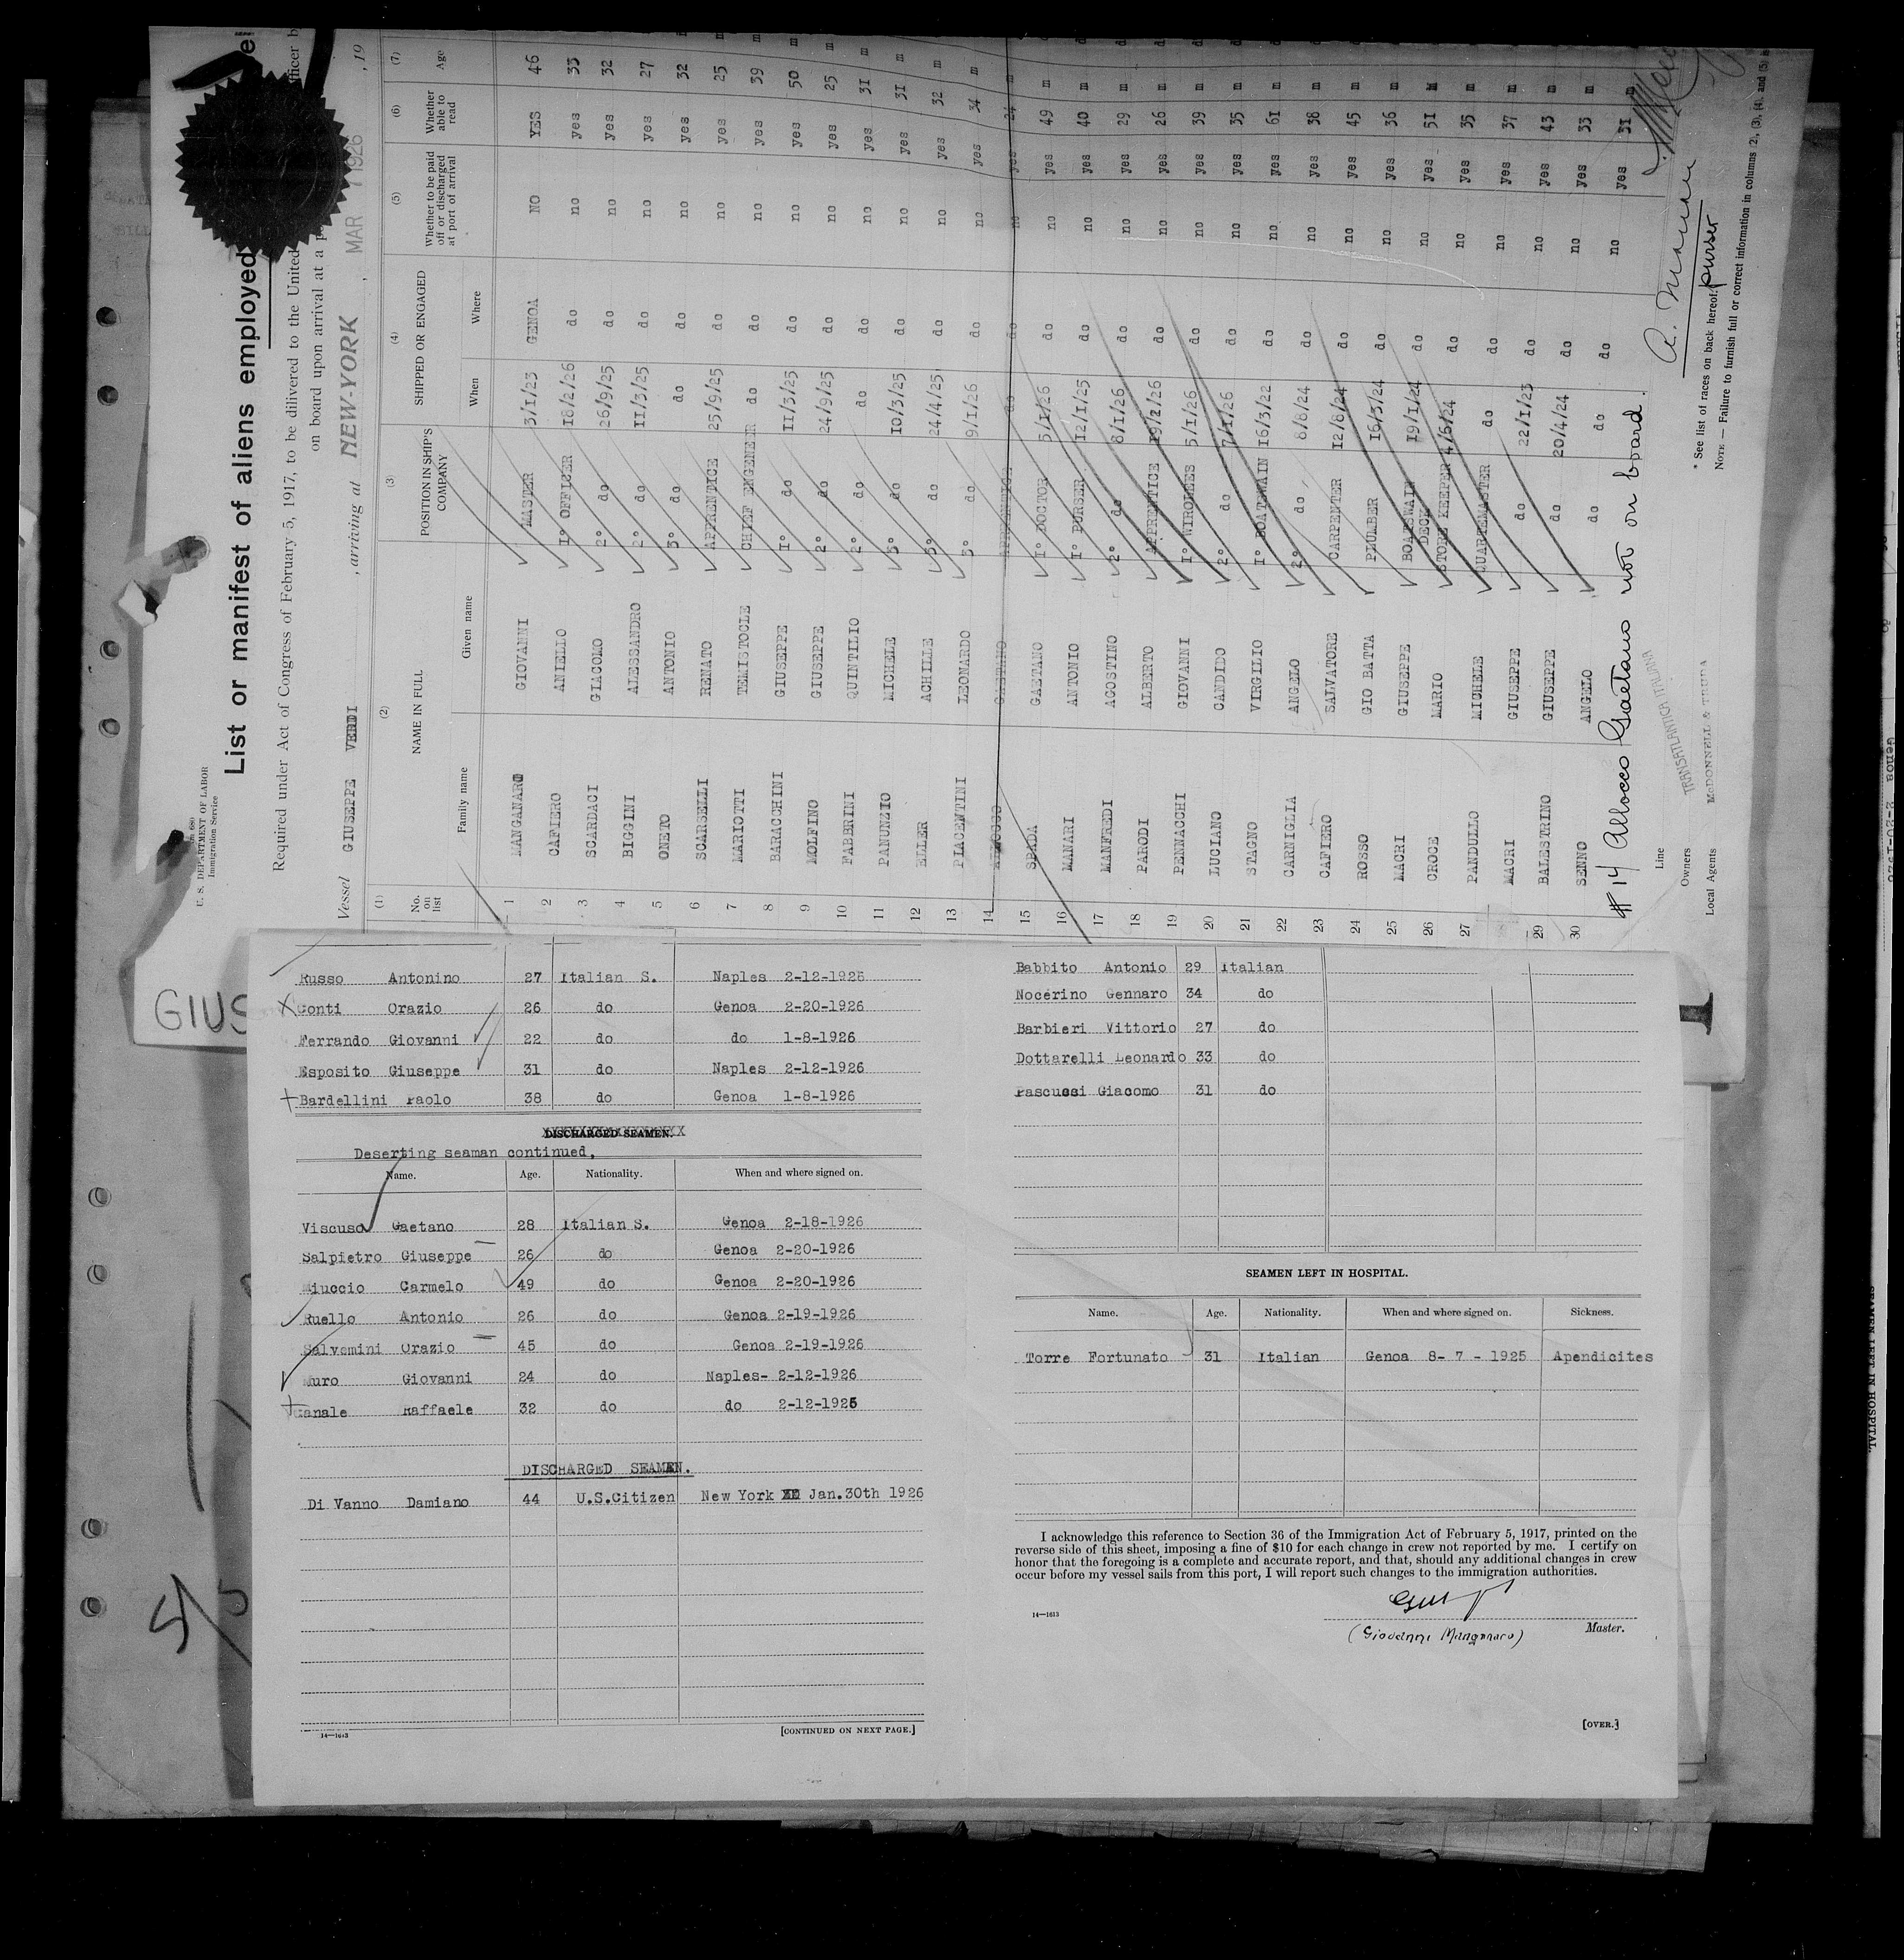 U. S. DEPARTMENT OF LABOR
Immigration Service
List or manifest of aliens employed
Required under Act of Congress of February 5, 1917, to be dilivered to the United
on board upon arrival at a
Vessel GIUSEPPE VERDI , arriving at NEW-YORK , MAR 7 1926 , 19
(1) (2) (3) (4) (5) (6) (7)
No. on list NAME IN FULL POSITION IN SHIP'S COMPANY SHIPPED OR ENGAGED Whether to be paid off or discharged at port of arrival Whether able to read Age
Family name Given name When Where
1 MANGANARO GIOVANNI MASTER 3/1/23 GENOA NO YES 46
2 CAFIERO ANIELLO 1° OFFICER 18/2/26 do no yes 33 m
3 SCARDACI GIACOMO 2° do 26/9/25 do no yes 32
4 BIGGINI ALESSANDRO 2° do 11/3/25 do no yes 27
5 ONETO ANTONIO 3° do do do no yes 32
6 SCARSELLI RENATO APPRENTICE 25/9/25 do no yes 25 m
7 MARIOTTI TEMISTOCLE CHIEF ENGENEER do do no yes 39 m
8 BARACCHINI GIUSEPPE 1° do 11/3/25 do no yes 50 m
9 MOLFINO GIUSEPPE 2° do 24/9/25 do no yes 25 m
10 FABBRINI QUINTILIO 2° do do do no yes 31 m
11 PANUNZIO MICHELE 3° do 10/3/25 do no yes 31 m
12 ELLER ACHILLE 3° do 24/4/25 do no yes 32 m
13 PIACENTINI LEONARDO 3° do 9/1/26 do no yes 34 m
14 ALLOCCO GAETANO APPRENTICE do do no yes 24 m
15 SPADA GAETANO 1° DOCTOR 5/1/26 do no yes 49 m
16 MANARI ANTONIO 1° PURSER 12/1/25 do no yes 40 m
17 MANFREDI AGOSTINO 2° do 8/1/26 do no yes 29 m
18 PARODI ALBERTO APPRENTICE 19/2/26 do no yes 26 m
19 PENNACCHI GIOVANNI 1° WIROLEES 5/1/26 do no yes 39 m
20 LUCIANO CANDIDO 2° do 7/1/26 do no yes 35 m
21 STAGNO VIRGILIO 1° BOATSWAIN 16/3/22 do no yes 61 m
22 CARNIGLIA ANGELO 2° do 8/8/24 do no yes 38 m
23 CAFIERO SALVATORE CARPENTER 12/8/24 do no yes 45 m
24 ROSSO GIO BATTA PLUMBER 16/3/24 do no yes 36 m
25 MACRI GIUSEPPE BOATSWAIN 19/1/24 do no yes 51 m
26 CROCE MARIO DECK STORE KEEPER 4/6/24 do no yes 35 m
27 PANDULLO MICHELE QUARTEMASTER do do no yes 37 m
MACRI GIUSEPPE do 22/1/23 do no yes 43 m
29 BALESTRINO GIUSEPPE do 20/4/24 do no yes 33 m
30 SENNO ANGELO do do do no yes 31 m
# 14 Allocco Gaetano not on board.
A. Manari
purser
Line
Owners TRANSATLANTICA ITALIANA
Local Agents McDONNELL & TRUDA
* See list of races on back hereof.
NOTE — Failure to furnish full or correct information in columns (2), (3), (4), and (5) is
GIUS
Russo Antonino 27 Italian S. Naples 2-12-1926
Conti Orazio 26 do Genoa 2-20-1926
Ferrando Giovanni 22 do do 1-8-1926
Esposito Giuseppe 31 do Naples 2-12-1926
Bardellini Paolo 38 do Genoa 1-8-1926
DISCHARGED SEAMEN.
Deserting seaman continued,
Name. Age. Nationality. When and where signed on.
Viscuso Gaetano 28 Italian S. Genoa 2-18-1926
Salpietro Giuseppe 26 do Genoa 2-20-1926
Miuccio Carmelo 49 do Genoa 2-20-1926
Ruello Antonio 26 do Genoa 2-19-1926
Salvemini Orazio 45 do Genoa 2-19-1926
Muro Giovanni 24 do Naples- 2-12-1926
Canale Raffaele 32 do do 2-12-1926
DISCHARGED SEAMEN.
Di Vanno Damiano 44 U.S.Citizen New York Jan.30th 1926
14—1613
[CONTINUED ON NEXT PAGE.]
Babbito Antonio 29 Italian
Nocerino Gennaro 34 do
Barbieri Vittorio 27 do
Dottarelli Leonardo 33 do
Pascucci Giacomo 31 do
SEAMEN LEFT IN HOSPITAL.
Name. Age. Nationality. When and where signed on. Sickness.
Torre Fortunato 31 Italian Genoa 8- 7 - 1925 Apendicites
I acknowledge this reference to Section 36 of the Immigration Act of February 5, 1917, printed on the
reverse side of this sheet, imposing a fine of $10 for each change in crew not reported by me. I certify on
honor that the foregoing is a complete and accurate report, and that, should any additional changes in crew
occur before my vessel sails from this port, I will report such changes to the immigration authorities.
14—1613
(Giovanni Manganaro) Master.
[OVER.]